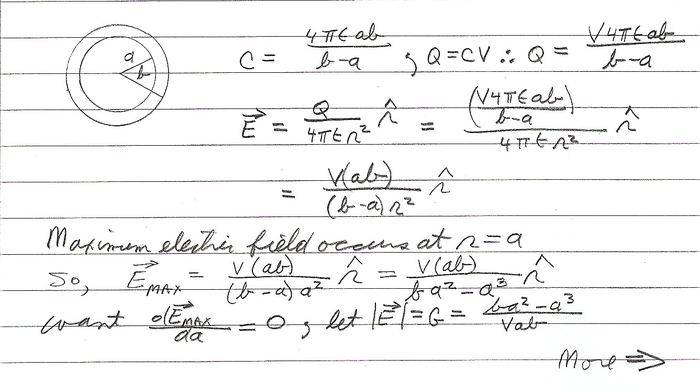 a
b
C = 4πϵab / b-a ; Q=CV ∴ Q = V4πϵab / b-a
E⃗ = Q / 4πϵr² r̂ = (V4πϵab / b-a) / 4πϵr² r̂
= V(ab) / (b-a)r² r̂
Maximum electric field occurs at r=a
So, E⃗MAX = V(ab) / (b-a)a² r̂ = V(ab) / ba²-a³ r̂
want dE⃗MAX / da = 0 ; let |E⃗|=G= ba²-a³ / Vab
More ⇒